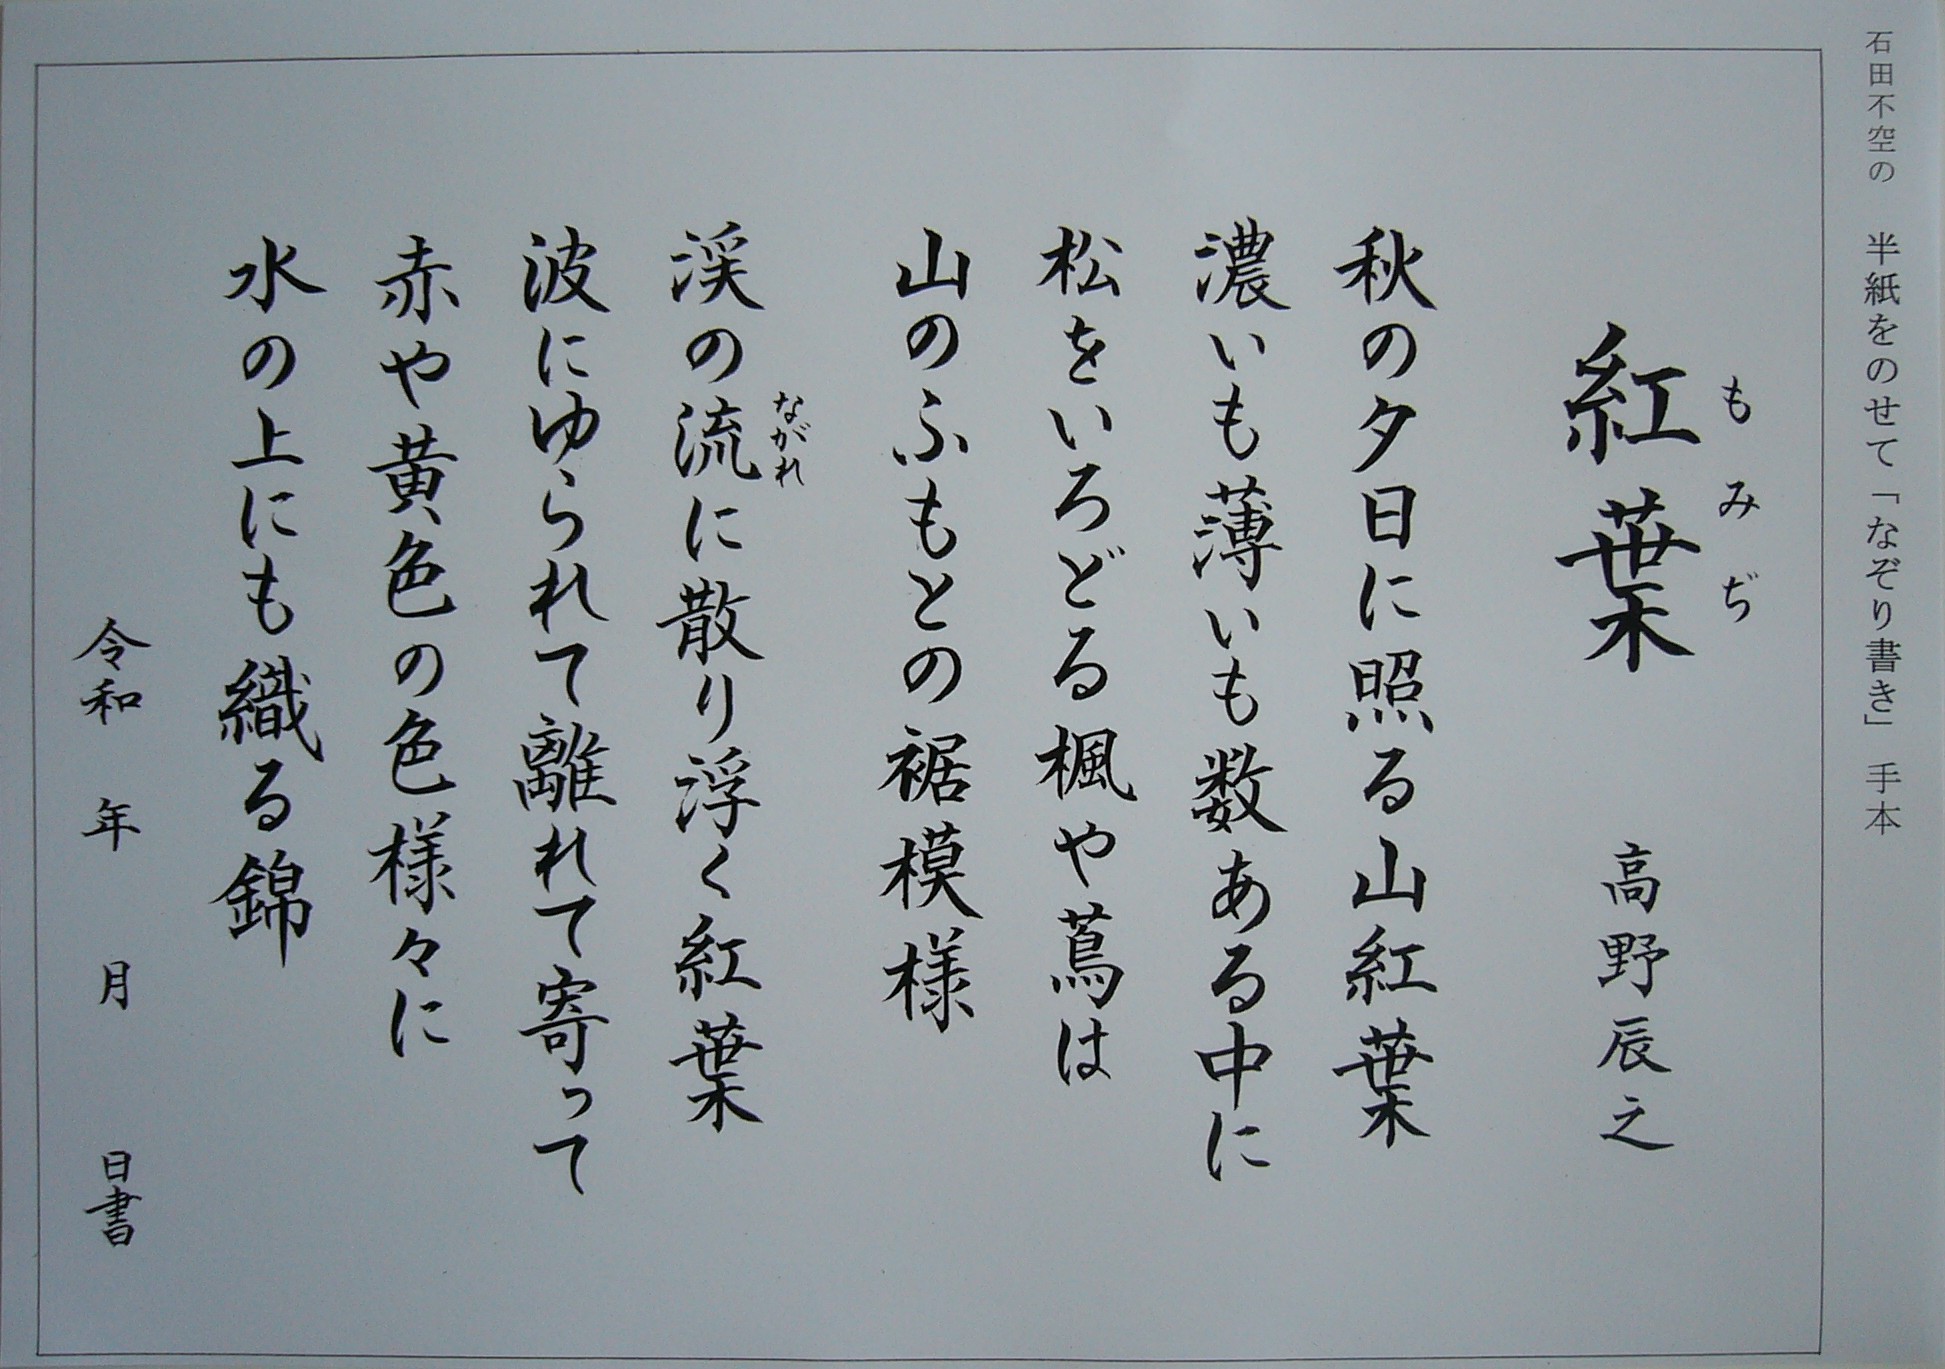 石田不空の 半紙をのせて「なぞり書き」手本
紅葉 高野辰之
もみぢ
秋の夕日に照る山紅葉
濃いも薄いも数ある中に
松をいろどる楓や蔦は
山のふもとの裾模様
渓の流に散り浮く紅葉
ながれ
波にゆられて離れて寄って
赤や黄色の色様々に
水の上にも織る錦
令和 年 月 日書